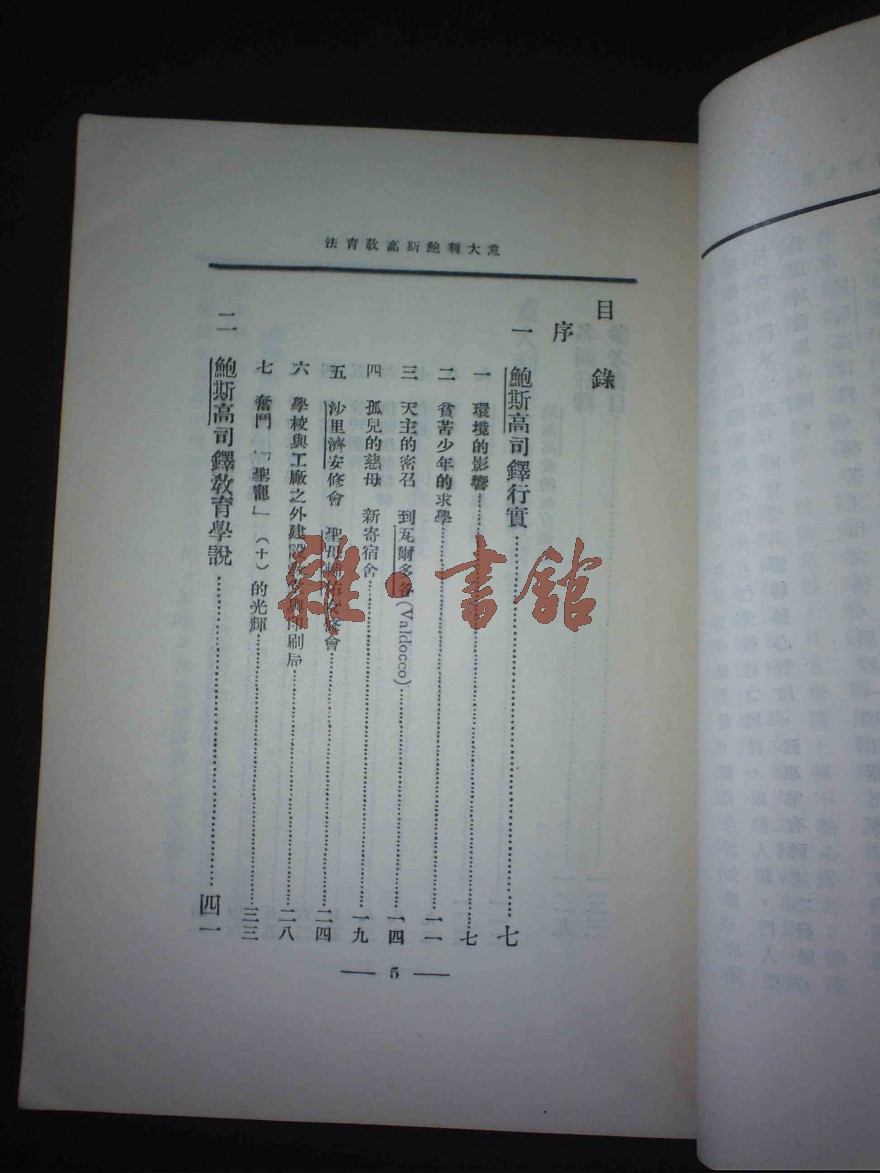 意大利鮑斯高教育法
目錄
序
一 鮑斯高司鐸行實 七
一 環境的影響 七
二 貧苦少年的求學 一一
三 天主的密召 到瓦爾多谷(Valdocco) 一四
四 孤兒的慈母 新寄宿舍 一九
五 沙里濟安修會 聖母 修會 二四
六 學校與工廠之外建設 印刷局 二八
七 奮鬥 「聖寵」(十)的光輝 三三
二 鮑斯高司鐸教育學說 四一
— 5 —
雜·書館